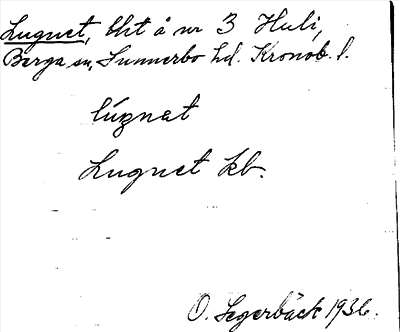 Lugnet, bht å nr 3 Huli,
Berga sn, Sunnerbo hd. Kronob. l.
lúgnat
Lugnet kb.
O. Segerbäck 1936.